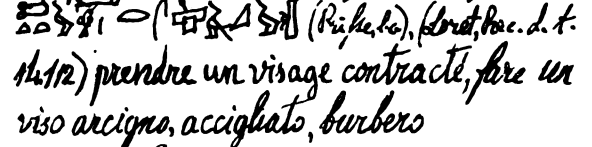 (Loret, Rec. d. t.
14.112) prendre un visage contracté, fare un
viso arcigno, accigliato, burbero